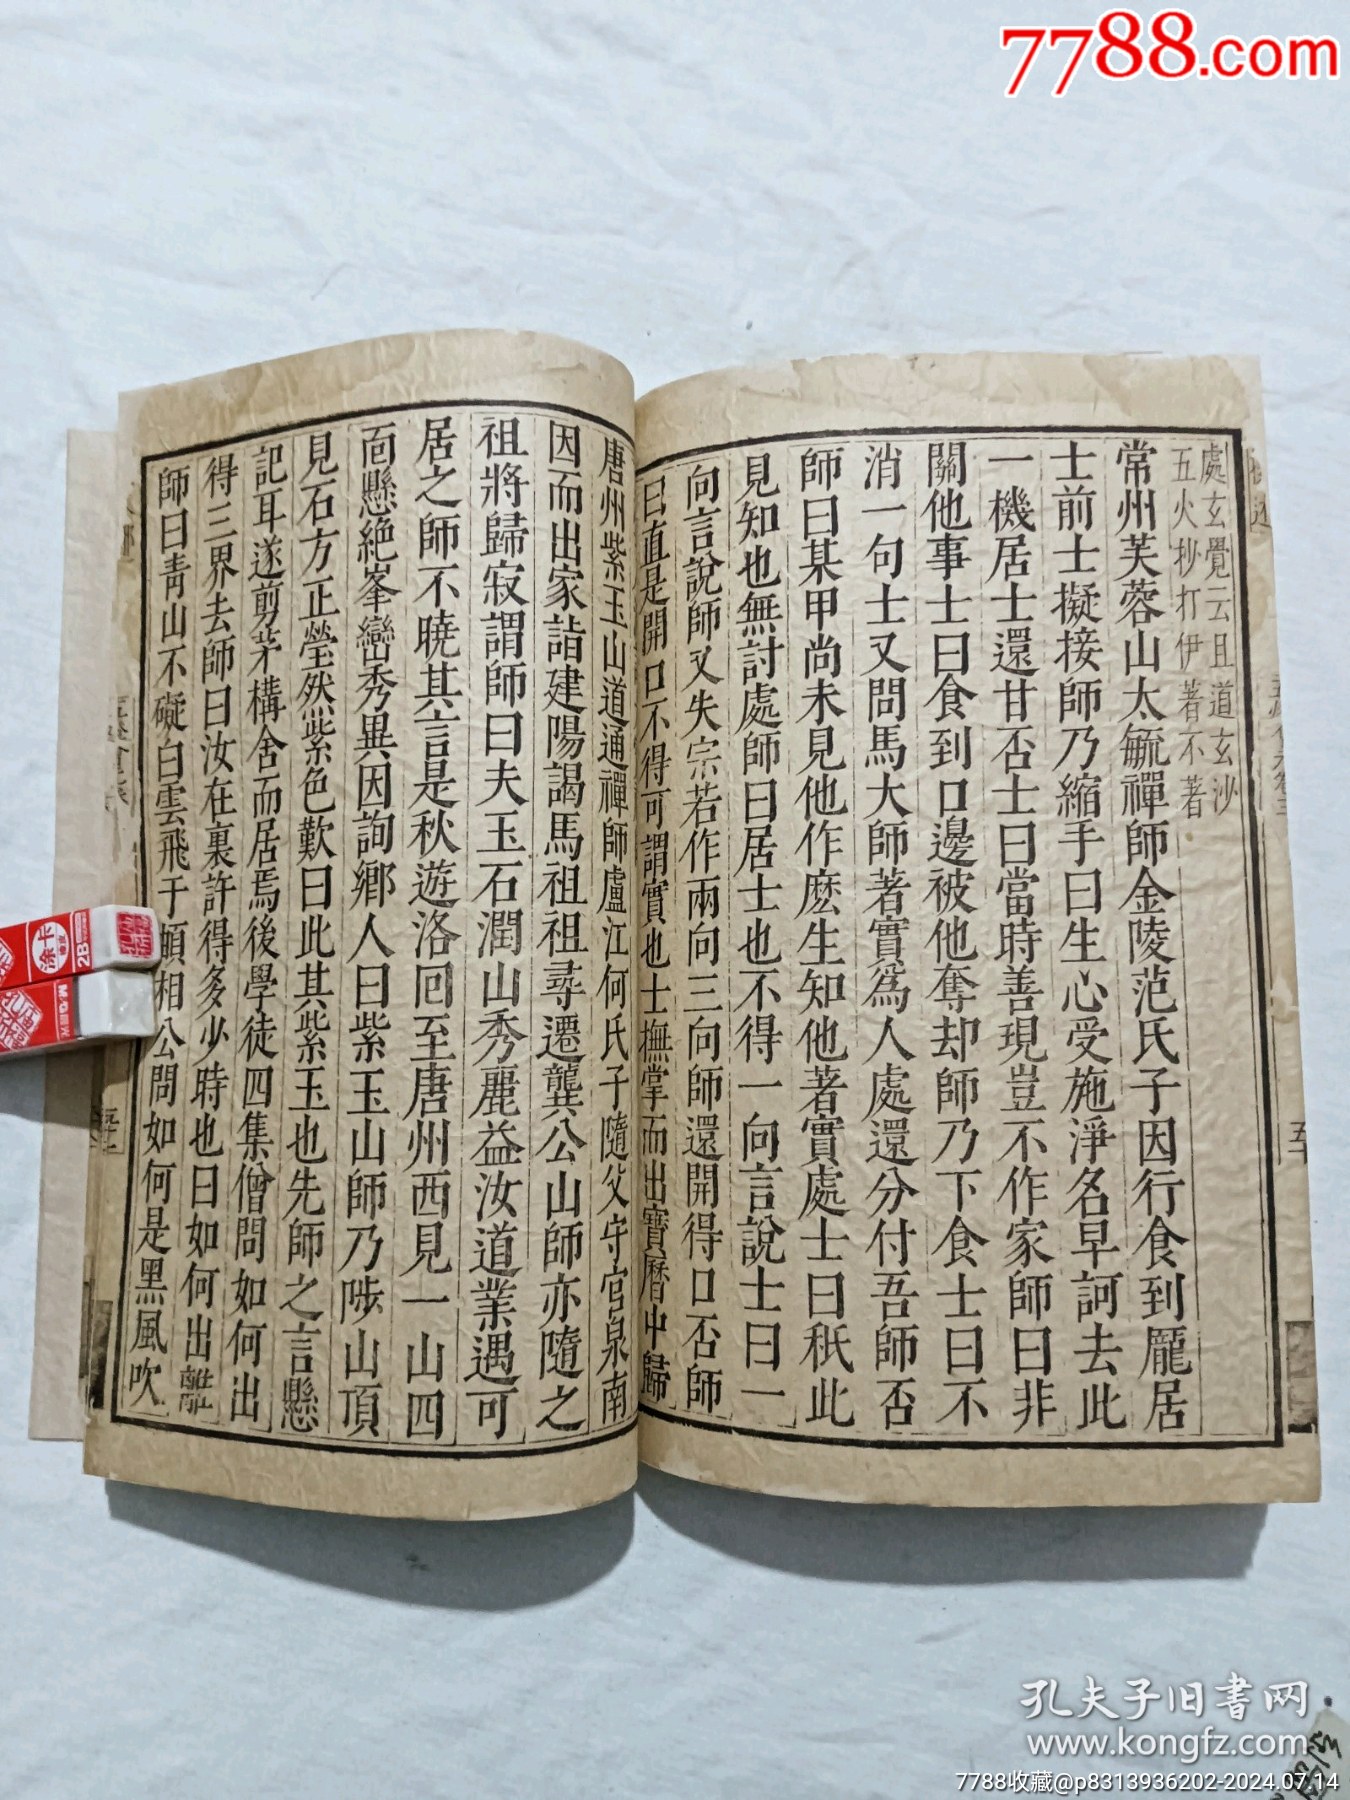 7788.com
處玄覺云且道玄沙
五火杪打伊著不著
常州芙蓉山太毓禪師金陵范氏子因行食到龐居
士前士擬接師乃縮手曰生心受施淨名早訶去此
一機居士還甘否士曰當時善現豈不作家師曰非
關他事士曰食到口邊被他奪却師乃下食士曰不
消一句士又問馬大師著實爲人處還分付吾師否
師曰某甲尚未見他作麼生知他著實處士曰秖此
見知也無討處師曰居士也不得一向言說士曰一
向言說師又失宗若作兩向三向師還開得口否師
曰直是開口不得可謂實也士撫掌而出寶曆中歸
唐州紫玉山道通禪師盧江何氏子隨父守官泉南
因而出家詣建陽謁馬祖祖尋遷龔公山師亦隨之
祖將歸寂謂師曰夫玉石潤山秀麗益汝道業遇可
居之師不曉其言是秋遊洛回至唐州西見一山四
面懸絶峯巒秀異因詢鄉人曰紫玉山師乃陟山頂
見石方正瑩然紫色歎曰此其紫玉也先師之言懸
記耳遂剪茅構舍而居焉後學徒四集僧問如何出
得三界去師曰汝在裏許得多少時也曰如何出離
師曰青山不礙白雲飛于頔相公問如何是黑風吹
涂卡
2B
M&G
孔夫子旧书网
www.kongfz.com
7788收藏@p8313936202-2024.07.14